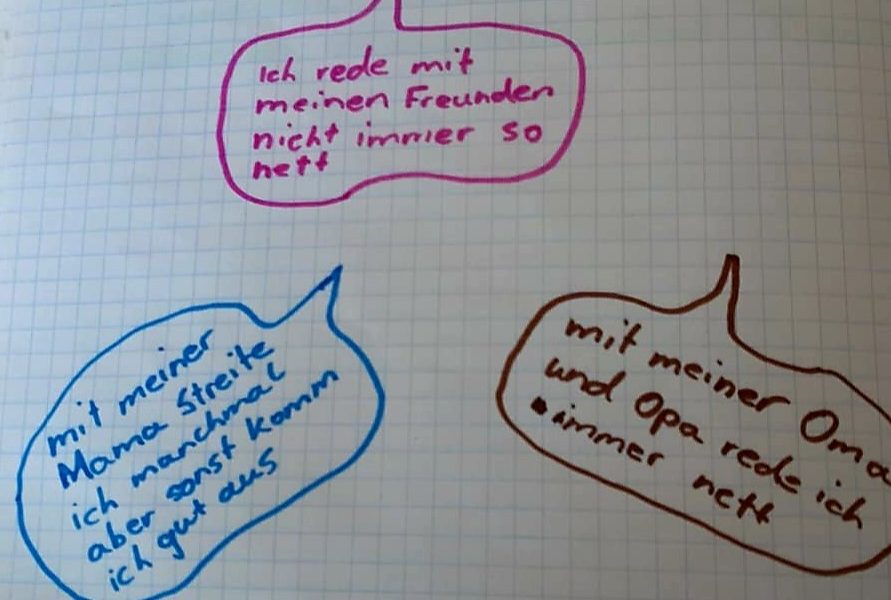 Ich rede mit
meinen Freunden
nicht immer so
nett
mit meiner
Mama streite
ich manchmal
aber sonst komm
ich gut aus
mit meiner Oma
und Opa rede ich
immer nett